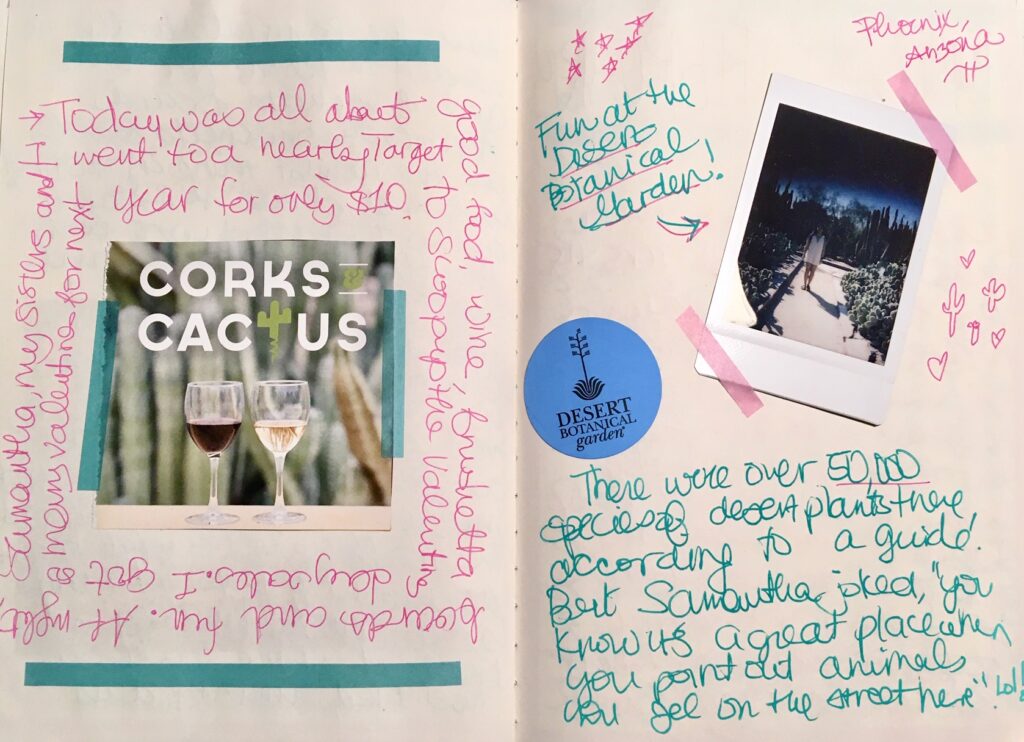 Today was all about
good food, wine, bruschetta
boards and fun. At night,
Samantha, my sisters and I →
went to a nearby Target
to scoop up the Valentines
day sales. I got
so many valentines for next
year for only $10.
CORKS &
CACTUS
Phoenix,
Arizona
Fun at the
Desert
Botanical
Garden!
DESERT
BOTANICAL
garden®
There were over 50,000
species of desert plants there
according to a guide!
But Samantha joked, "you
know it's a great place when
you point out animals
you see on the street here". Lol!